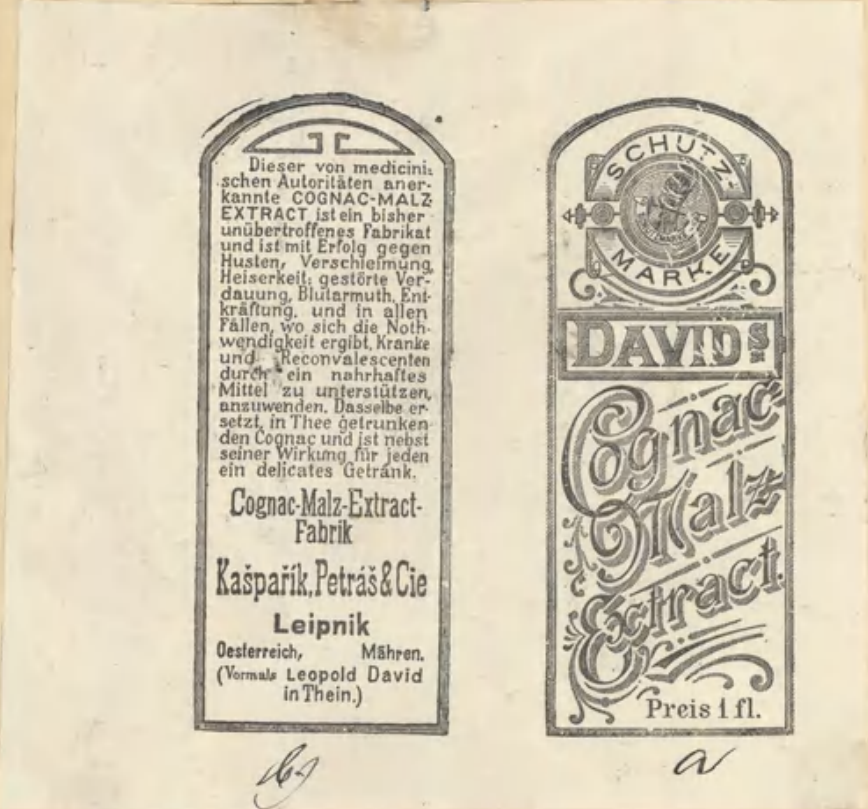 Dieser von medicini-
schen Autoritäten aner-
kannte COGNAC-MALZ-
EXTRACT ist ein bisher
unübertroffenes Fabrikat
und ist mit Erfolg gegen
Husten, Verschleimung,
Heiserkeit, gestörte Ver-
dauung, Blutarmuth, Ent-
kräftung, und in allen
Fällen, wo sich die Noth-
wendigkeit ergibt, Kranke
und Reconvalescenten
durch ein nahrhaftes
Mittel zu unterstützen,
anzuwenden. Dasselbe er-
setzt, in Thee getrunken
den Cognac und ist nebst
seiner Wirkung für jeden
ein delicates Getränk.
Cognac-Malz-Extract-
Fabrik
Kašpařík, Petráš & Cie
Leipnik
Oesterreich, Mähren.
(Vormals Leopold David
in Thein.)
b)
SCHUTZ-
MARKE
DAVIDS
Cognac-
Malz-
Extract.
Preis 1 fl.
a